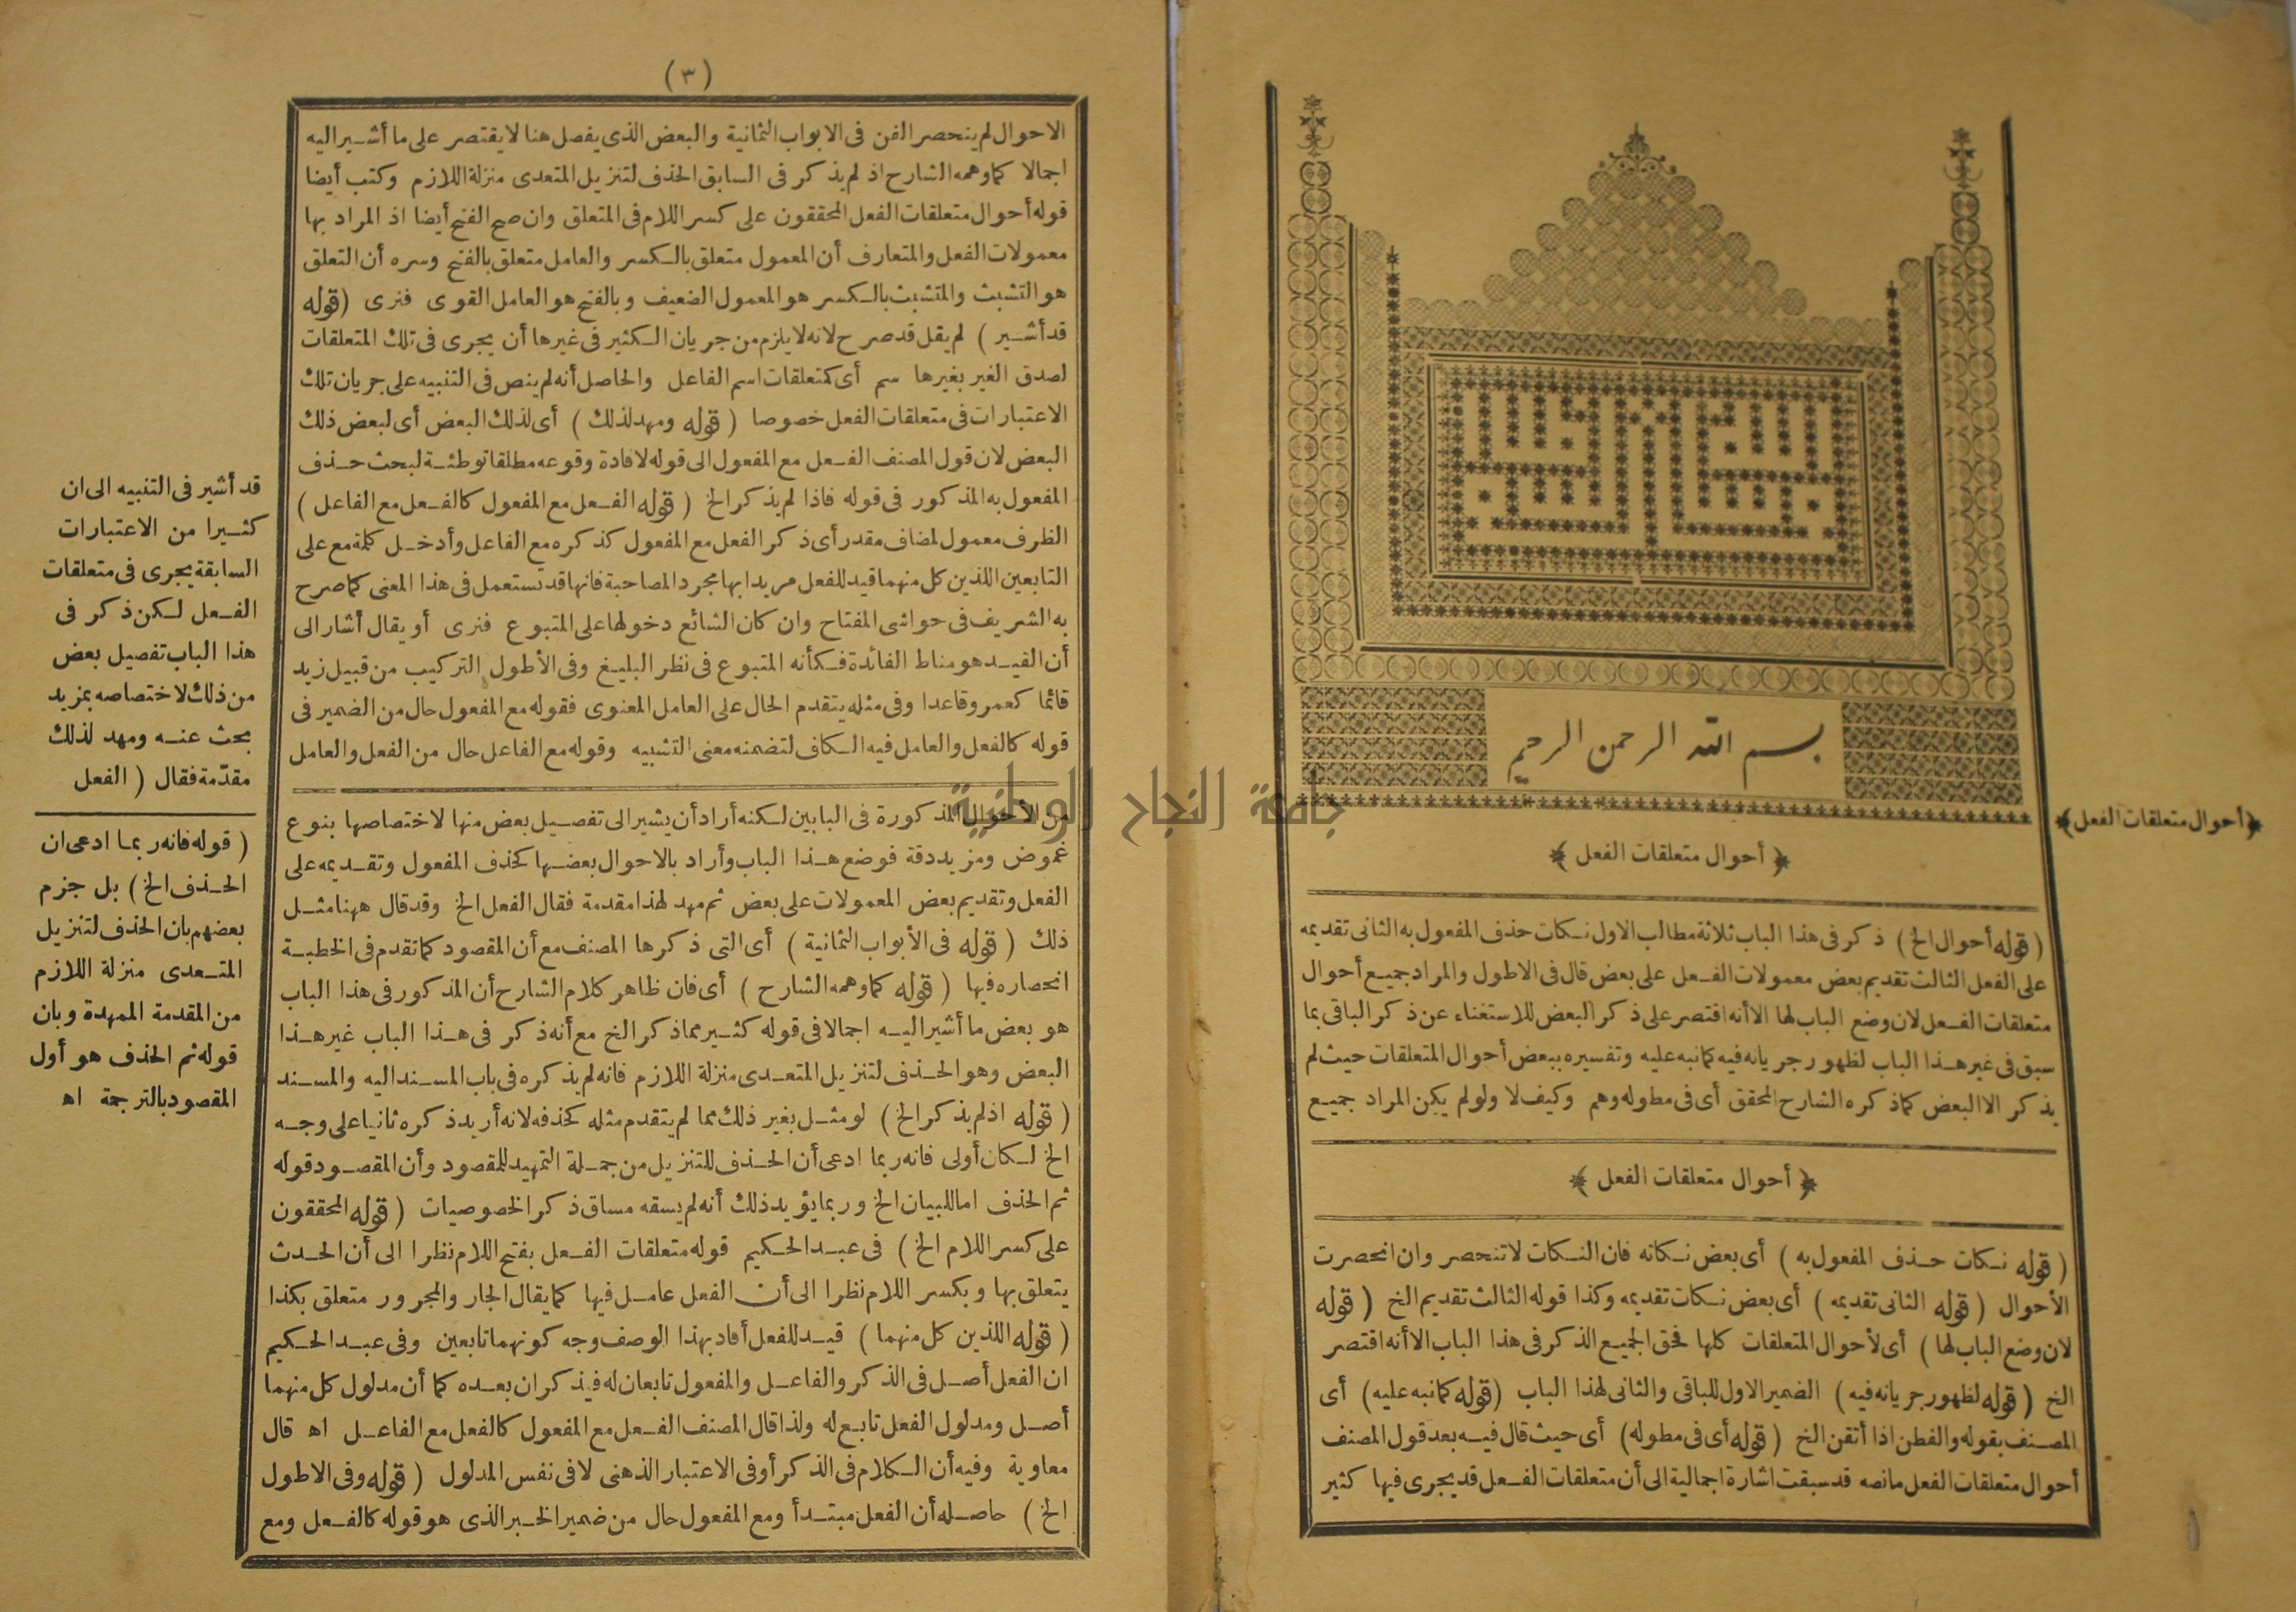 بسم الله الرحمن الرحيم
﴿أحوال متعلقات الفعل﴾
﴿أحوال متعلقات الفعل﴾
(قوله أحوال الخ) ذكر فى هذا الباب ثلاثة مطالب الاول نكات حذف المفعول به الثانى تقديمه
على الفعل الثالث تقديم بعض معمولات الفعل على بعض قال فى الاطول والمراد جميع أحوال
متعلقات الفعل لان وضع الباب لها الا أنه اقتصر على ذكر البعض للاستغناء عن ذكر الباقى بما
سبق فى غير هذا الباب لظهور جريانه فيه كما نبه عليه وتفسيره ببعض أحوال المتعلقات حيث لم
يذكر الا البعض كما ذكره الشارح المحقق أى فى مطوله وهم وكيف لا ولو لم يكن المراد جميع
﴿أحوال متعلقات الفعل﴾
(قوله نكات حذف المفعول به) أى بعض نكاته فان النكات لا تنحصر وان انحصرت
الأحوال (قوله الثانى تقديمه) أى بعض نكات تقديمه وكذا قوله الثالث تقديم الخ (قوله
لان وضع الباب لها) أى لأحوال المتعلقات كلها فحق الجميع الذكر فى هذا الباب الا أنه اقتصر
الخ (قوله لظهور جريانه فيه) الضمير الاول للباقى والثانى لهذا الباب (قوله كما نبه عليه) أى
المصنف بقوله والفطن اذا أتقن الخ (قوله أى فى مطوله) أى حيث قال فيه بعد قول المصنف
أحوال متعلقات الفعل ما نصه قد سبقت اشارة اجمالية الى أن متعلقات الفعل قد يجرى فيها كثير
(٣)
الاحوال لم ينحصر الفن فى الابواب الثمانية والبعض الذى يفصل هنا لا يقتصر على ما أشير اليه
اجمالا كما وهمه الشارح اذ لم يذكر فى السابق الحذف لتنزيل المتعدى منزلة اللازم وكتب أيضا
قوله أحوال متعلقات الفعل المحققون على كسر اللام فى المتعلق وان صح الفتح أيضا اذ المراد بها
معمولات الفعل والمتعارف أن المعمول متعلق بالكسر والعامل متعلق بالفتح وسره أن التعلق
هو التشبث والمتشبث بالكسر هو المعمول الضعيف وبالفتح هو العامل القوى فنرى (قوله
قد أشير) لم يقل قد صرح لانه لا يلزم من جريان الكثير فى غيرها أن يجرى فى تلك المتعلقات
لصدق الغير بغيرها سم أى كمتعلقات اسم الفاعل والحاصل أنه لم ينص فى التنبيه على جريان تلك
الاعتبارات فى متعلقات الفعل خصوصا (قوله ومهد لذلك) أى لذلك البعض أى لبعض ذلك
البعض لان قول المصنف الفعل مع المفعول الى قوله لا فادة وقوعه مطلقا توطئة لبحث حذف
المفعول به المذكور فى قوله فاذا لم يذكر الخ (قوله الفعل مع المفعول كالفعل مع الفاعل)
الظرف معمول لمضاف مقدر أى ذكر الفعل مع المفعول كذكره مع الفاعل وأدخل كلمة مع على
التابعين اللذين كل منهما قيد للفعل مريدا بها مجرد المصاحبة فانها قد تستعمل فى هذا المعنى كما صرح
به الشريف فى حواشى المفتاح وان كان الشائع دخولها على المتبوع فنرى أو يقال أشار الى
أن القيد هو مناط الفائدة فكأنه المتبوع فى نظر البليغ وفى الأطول التركيب من قبيل زيد
قائما كعمرو قاعدا وفى مثله يتقدم الحال على العامل المعنوى فقوله مع المفعول حال من الضمير فى
قوله كالفعل والعامل فيه الكاف لتضمنه معنى التشبيه وقوله مع الفاعل حال من الفعل والعامل
من الأحوال المذكورة فى البابين لكنه أراد أن يشير الى تفصيل بعض منها لاختصاصها بنوع
غموض ومزيد دقة فوضع هذا الباب وأراد بالاحوال بعضها كحذف المفعول وتقديمه على
الفعل وتقديم بعض المعمولات على بعض ثم مهد لهذا مقدمة فقال الفعل الخ وقد قال ههنا مثل
ذلك (قوله فى الأبواب الثمانية) أى التى ذكرها المصنف مع أن المقصود كما تقدم فى الخطبة
انحصاره فيها (قوله كما وهمه الشارح) أى فان ظاهر كلام الشارح أن المذكور فى هذا الباب
هو بعض ما أشير اليه اجمالا فى قوله كثير مما ذكر الخ مع أنه ذكر فى هذا الباب غير هذا
البعض وهو الحذف لتنزيل المتعدى منزلة اللازم فانه لم يذكره فى باب المسند اليه والمسند
(قوله اذ لم يذكر الخ) لو مثل بغير ذلك مما لم يتقدم مثله كحذفه لانه أريد ذكره ثانيا على وجه
الخ لكان أولى فانه ربما ادعى أن الحذف للتنزيل من جملة التمهيد للمقصود وأن المقصود قوله
ثم الحذف اما للبيان الخ وربما يؤيد ذلك أنه لم يسقه مساق ذكر الخصوصيات (قوله المحققون
على كسر اللام الخ) فى عبد الحكيم قوله متعلقات الفعل بفتح اللام نظرا الى أن الحدث
يتعلق بها وبكسر اللام نظرا الى أن الفعل عامل فيها كما يقال الجار والمجرور متعلق بكذا
(قوله اللذين كل منهما) قيد للفعل أفاد بهذا الوصف وجه كونهما تابعين وفى عبد الحكيم
ان الفعل أصل فى الذكر والفاعل والمفعول تابعان له فيذكران بعده كما أن مدلول كل منهما
أصل ومدلول الفعل تابع له ولذا قال المصنف الفعل مع المفعول كالفعل مع الفاعل اه قال
معاوية وفيه أن الكلام فى الذكر أو فى الاعتبار الذهنى لا فى نفس المدلول (قوله وفى الاطول
الخ) حاصله أن الفعل مبتدأ ومع المفعول حال من ضمير الخبر الذى هو قوله كالفعل ومع
قد أشير فى التنبيه الى ان
كثيرا من الاعتبارات
السابقة يجرى فى متعلقات
الفعل لكن ذكر فى
هذا الباب تفصيل بعض
من ذلك لاختصاصه بمزيد
بحث عنه ومهد لذلك
مقدّمة فقال (الفعل
(قوله فانه ربما ادعى ان
الحذف الخ) بل جزم
بعضهم بان الحذف لتنزيل
المتعدى منزلة اللازم
من المقدمة الممهدة وبان
قوله ثم الحذف هو أول
المقصود بالترجمة اه
جامعة النجاح الوطنية